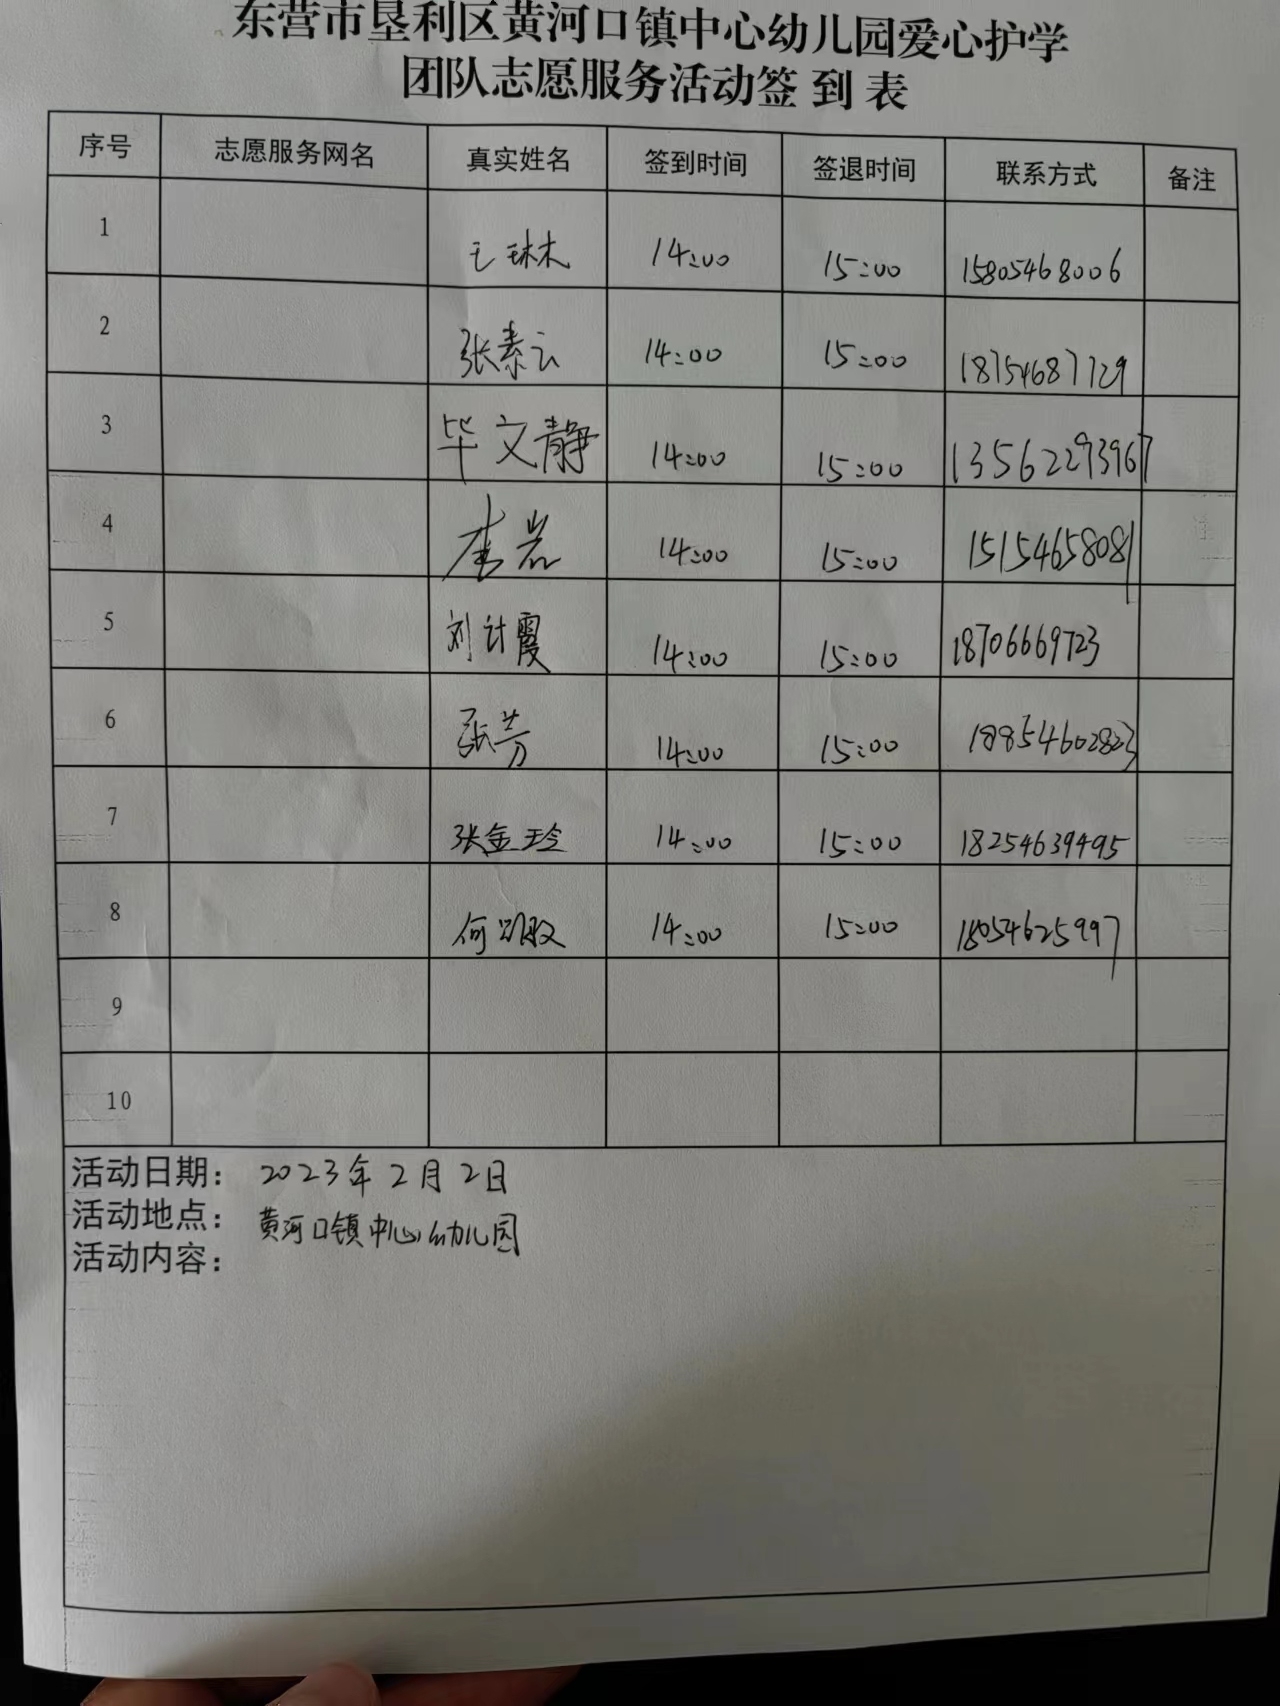 东营市垦利区黄河口镇中心幼儿园爱心护学
团队志愿服务活动签到表
序号 志愿服务网名 真实姓名 签到时间 签退时间 联系方式 备注
1 王琳 14:00 15:00 15805468006
2 张素云 14:00 15:00 18754687729
3 毕文静 14:00 15:00 13562293967
4 李岩 14:00 15:00 15154658081
5 刘计霞 14:00 15:00 18706669723
6 张芳 14:00 15:00 18854602823
7 张金玲 14:00 15:00 18254639495
8 何 14:00 15:00 18054625997
9
10
活动日期： 2023年2月2日
活动地点： 黄河口镇中心幼儿园
活动内容：